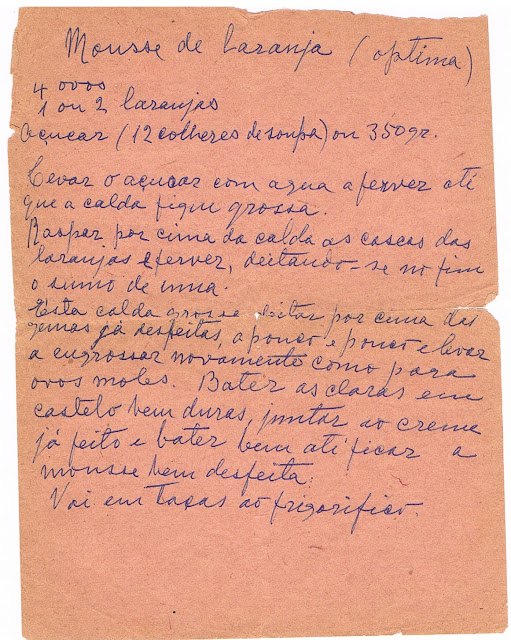 Mousse de laranja (optima)
4 ovos
1 ou 2 laranjas
Açucar (12 colheres de soupa) ou 350gr.
Levar o açucar com agua a ferver até
que a calda fique grossa.
Raspar por cima da calda as cascas das
laranjas e ferver, deitando-se no fim
o sumo de uma.
Esta calda grossa deitar por cima das
gemas já desfeitas, a pouco e pouco e levar
a engrossar novamente como para
ovos moles. Bater as claras em
castelo bem duras, juntar ao creme
já feito e bater bem até ficar a
mousse bem desfeita.
Vai em taças ao frigorifico.